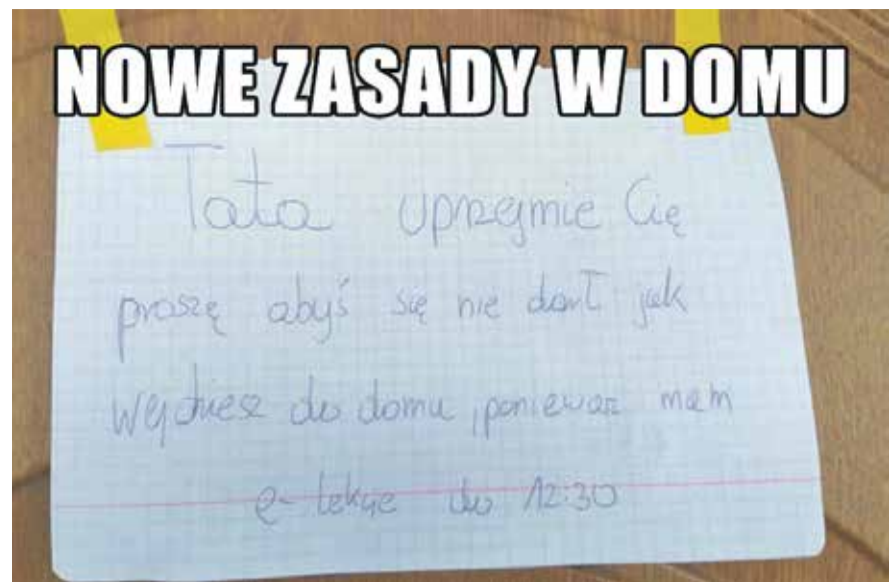 NOWE ZASADY W DOMU
Tata uprzejmie Cię
proszę abyś się nie darł jak
wejdziesz do domu, ponieważ mam
e-lekcje do 12:30